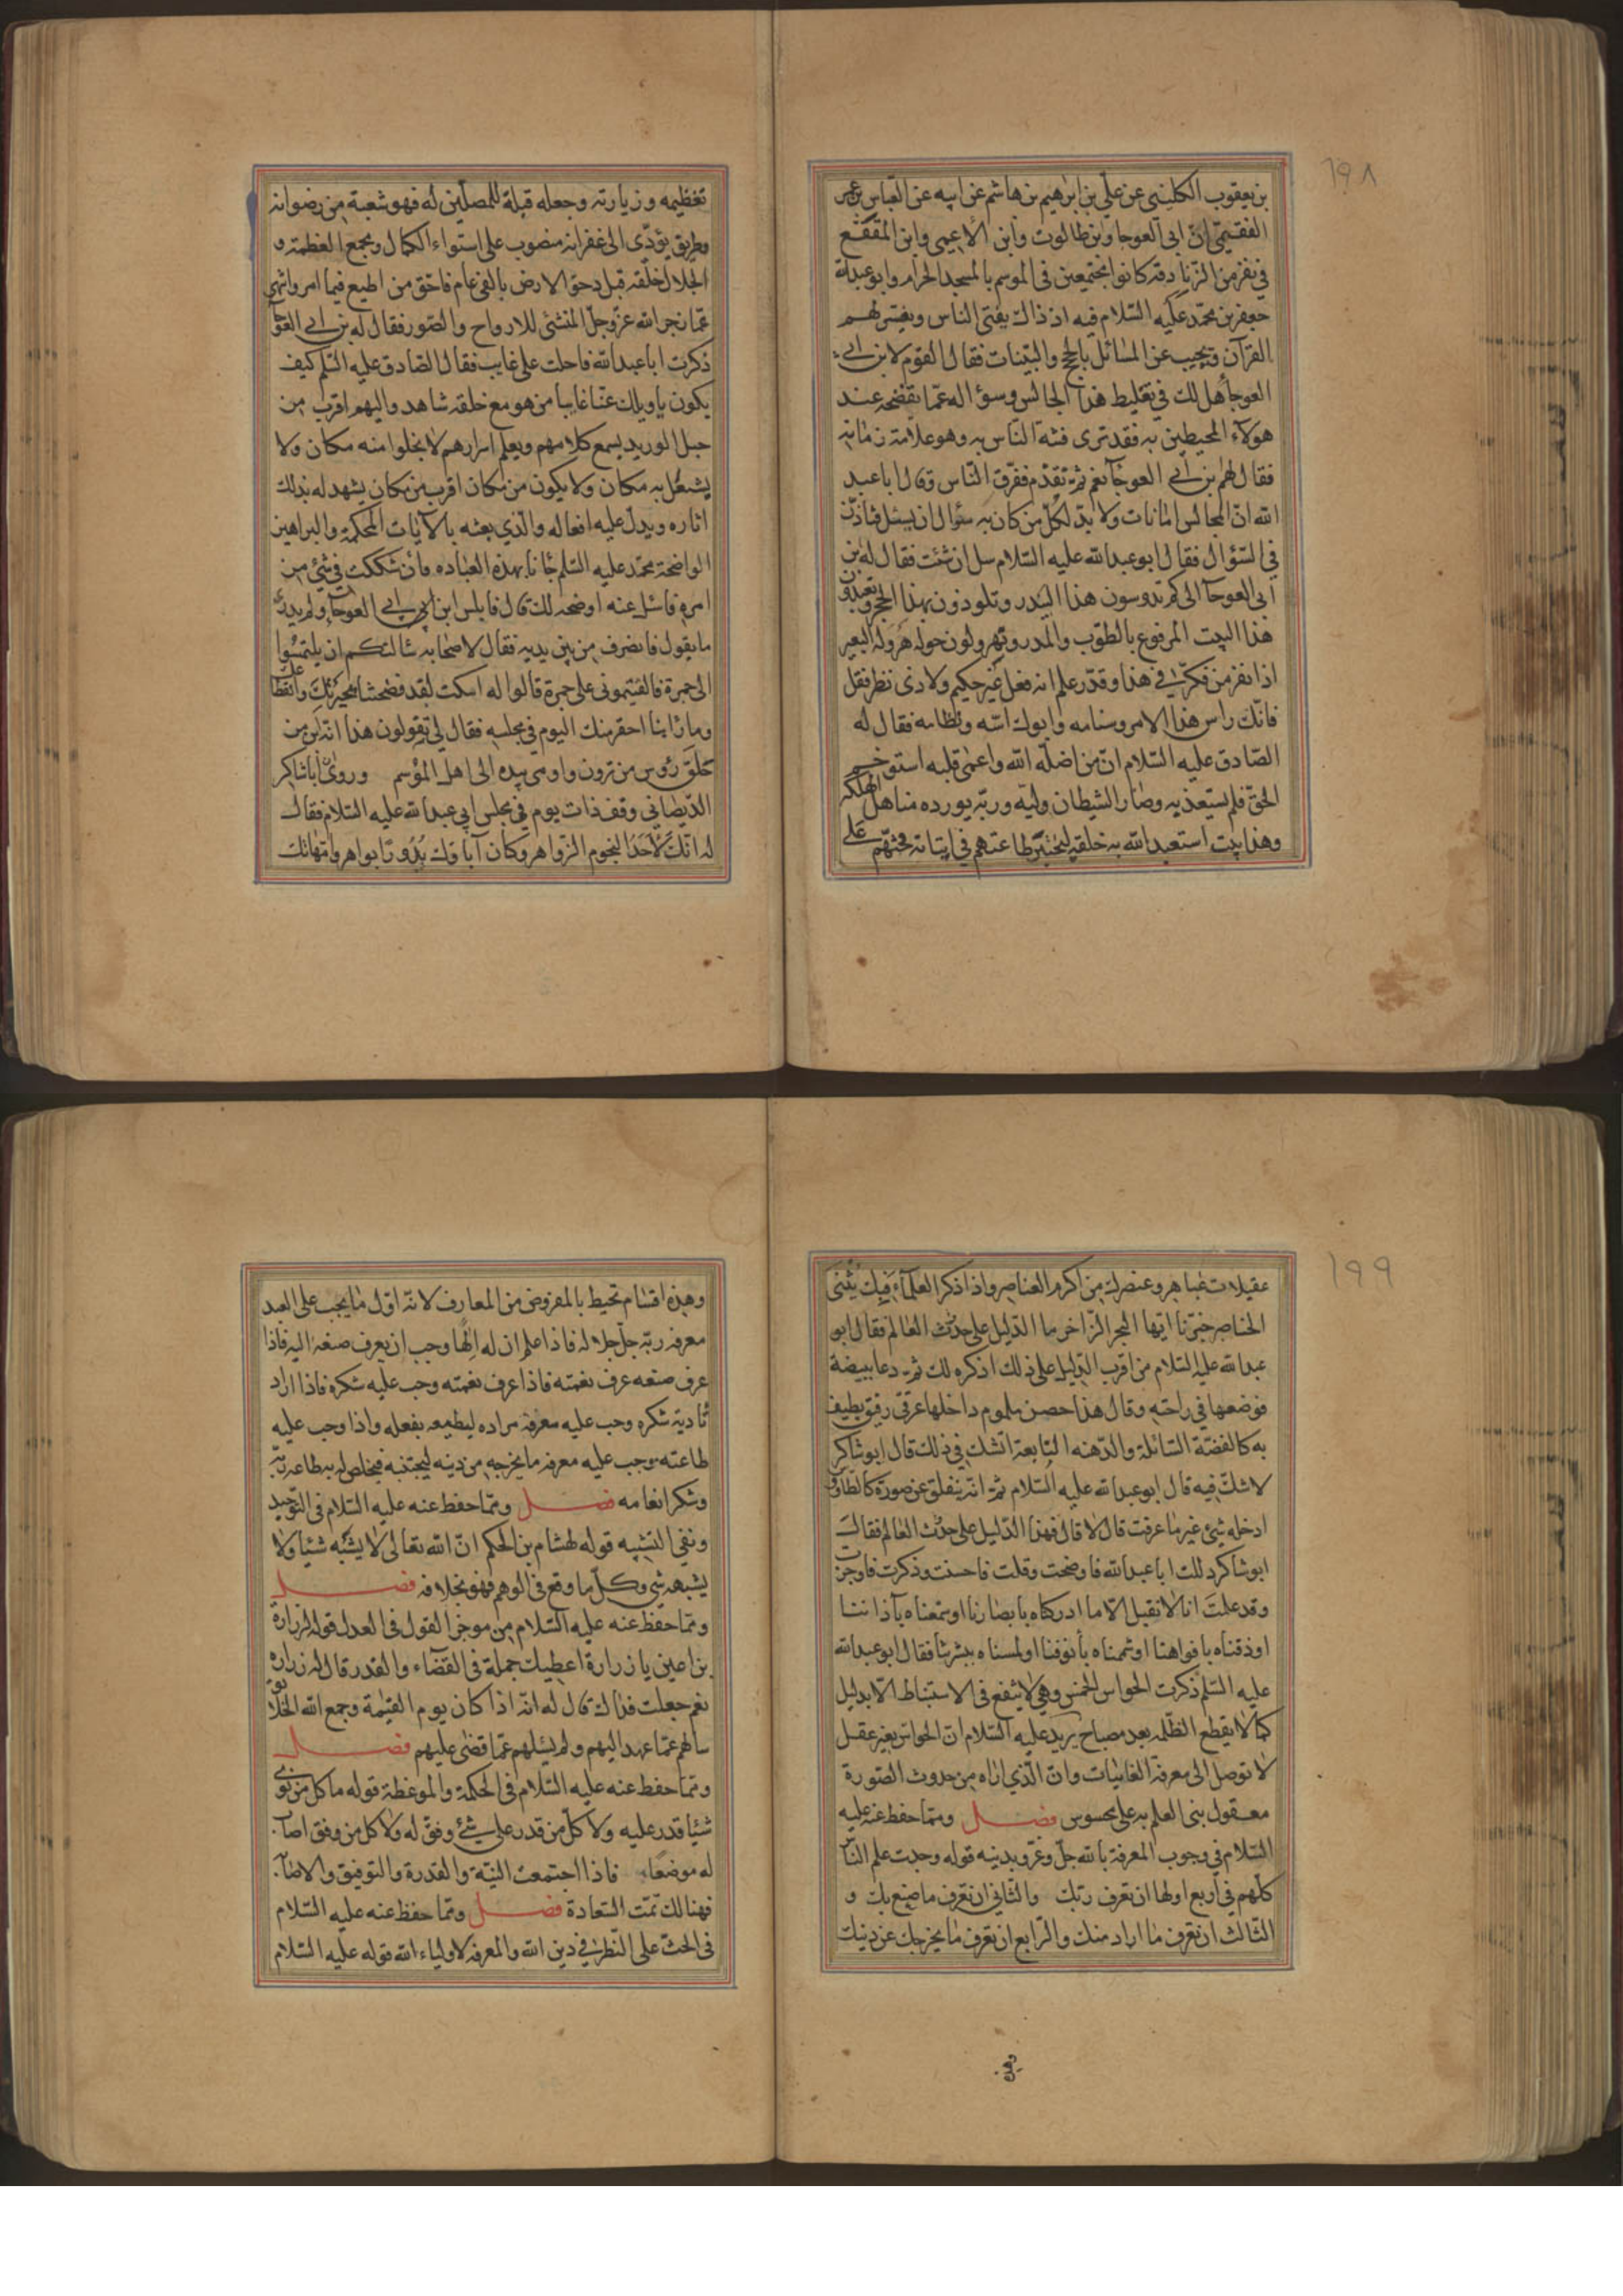 ١٩٨
بن يعقوب الكليني عن علي بن ابرهيم بن هاشم عن ابيه عن العباس بن عمر
الفقيمي ان ابي العوجا وابن طالوت وابن الاعمى وابن المقفع
في نفر من الزنادقه كانوا مجتمعين في الموسم بالمسجد الحرام وابو عبدالله
جعفر بن محمد عليه السلام فيه اذ ذاك يفتي الناس ويفسر لهم
القرآن ويجيب عن المسائل بالحجج والبينات فقال القوم لابن ابي
العوجا هل لك في تغليط هذا الجالس وسؤاله عما يفضحه عند
هؤلآء المحيطين به فقد ترى فتنة الناس به وهو علامة زمانه
فقال لهم بن ابي العوجآ نعم ثم تقدم ففرق الناس وقال اباعبد
الله ان المجالس امانات ولا بد لكل من كان به سؤال ان يسئل فتاذن
في السؤال فقال ابو عبدالله عليه السلام سل ان شئت فقال له بن
ابي العوجآ الى كم تدوسون هذا البيدر وتلوذون بهذا الحجر وتعبدون
هذا البيت المرفوع بالطوب والمدر وتهرولون حوله هرولة البعير
اذا نفر من فكر في هذا وقدر علم انه فعل غير حكيم ولا ذي نظر فقل
فانك راس هذا الامر وسنامه وابوك اسه ونظامه فقال له
الصادق عليه السلام ان من اضله الله واعمى قلبه استوخم
الحق فلم يستعذ به وصار الشيطان وليه وربه يورده مناهل الهلكه
وهذا بيت استعبد الله به خلقه ليختبر طاعتهم في اتيانه فحثهم على
تعظيمه وزيارته وجعله قبلة للمصلين له فهو شعبة من رضوانه
وطريق يؤدي الى غفرانه منصوب على استواء الكمال ومجمع العظمة و
الجلال خلقه قبل دحو الارض بالفي عام فاحق من اطيع فيما امر وانتهي
عما زجر الله عز وجل المنشئ للارواح والصور فقال له بن ابي العوجآ
ذكرت اباعبدالله فاحلت على غايب فقال الصادق عليه السلم كيف
يكون ياويلك عنا غايبا من هو مع خلقه شاهد واليهم اقرب من
حبل الوريد يسمع كلامهم ويعلم اسرارهم لا يخلوا منه مكان ولا
يشتغل به مكان ولا يكون من مكان اقرب من مكان يشهد له بذلك
اثاره ويدل عليه افعاله والذي بعثه بالآيات المحكمة والبراهين
الواضحة محمد عليه السلم جانا بهذه العباده فان شككت في شئ من
امره فاسئل عنه اوضحه لك قال فابلس ابن ابي العوجآ ولم يدر
ما يقول فانصرف من بين يديه فقال لاصحابه سالتكم ان يلتمسوا
الى خمرة فالقيتموني على جمرة قالوا له اسكت لقد فضحتنا بحيرتك وانقطاعك
وما راينا احقر منك اليوم في مجلسه فقال لي تقولون هذا انه ابن من
حلق رؤس من ترون واومى بيده الى اهل الموسم وروى ان اباشاكر
الديصاني وقف ذات يوم في مجلس ابي عبدالله عليه السلام فقال
له انك لاحد النجوم الزواهر وكان آباؤك بدورا بواهر وامهاتك
١٩٩
عقيلات عباهر وعنصرك من اكرم العناصر واذا ذكر العلمآء فبك يثنى
الخناصر خبرنا ايها البحر الزاخر ما الدليل على حدث العالم فقال ابو
عبدالله عليه السلام من اقرب الدليل على ذلك اذكره لك ثم دعا ببيضة
فوضعها في راحته وقال هذا حصن ملموم داخلها غرقى رقيق يطيف
به كالفضة السائلة والذهنه المايعة اتشك في ذلك قال ابوشاكر
لا شك فيه قال ابو عبدالله عليه السلام ثم انه ينفلق عن صورة كالطاوس
ادخله شئ غير ما عرفت قال لا قال فهذا الدليل على حدث العالم فقال
ابوشاكر دللت اباعبدالله فاوضحت وقلت فاحسنت وذكرت فاوجزت
وقد علمت انا لا نقبل الا ما ادركناه بابصارنا او سمعناه بآذاننا
او ذقناه بافواهنا او شممناه بأنوفنا او لمسناه ببشرتنا فقال ابو عبدالله
عليه السلم ذكرت الحواس الخمس وهي لا ينفع في الاستنباط الا بدليل
كما لا يقطع الظلمه بعد مصباح يريد عليه السلام ان الحواس بغير عقل
لا توصل الى معرفة الغائبات وان الذي اراه من حدوث الصورة
معقول بنى العلم به على محسوس فصل ومما حفظ عنه عليه
السلام في وجوب المعرفة بالله جل وعز وبدينه قوله وجدت علم الناس
كلهم في اربع اولها ان تعرف ربك والثاني ان تعرف ما صنع بك و
الثالث ان تعرف ما اراد منك والرابع ان تعرف ما يخرجك عن دينك
وهذه اقسام تحيط بالمفروض من المعارف لانه اول ما يجب على العبد
معرفة ربه جل جلاله فاذا علم ان له الها وجب ان يعرف صنعه اليه فاذا
عرف صنعه عرف نعمته فاذا عرف نعمته وجب عليه شكره فاذا اراد
تادية شكره وجب عليه معرفة مراده ليطيعه بفعله واذا وجب عليه
طاعته وجب عليه معرفة ما يخرجه من دينه ليجتنبه فيخلص له به طاعة ربه
وشكر انعامه فصل ومما حفظ عنه عليه السلام في التوحيد
ونفي التشبيه قوله لهشام بن الحكم ان الله تعالى لا يشبه شيئا ولا
يشبهه شئ وكل ما وقع في الوهم فهو بخلافه فصل
ومما حفظ عنه عليه السلام من موجز القول في العدل قوله لزرارة
بن اعين يا زرارة اعطيك جملة في القضاء والقدر قال له زراره
نعم جعلت فداك قال له انه اذا كان يوم القيمة وجمع الله الخلايق
سالهم عما عهد اليهم ولم يسئلهم عما قضى عليهم فصل
ومما حفظ عنه عليه السلام في الحكمة والموعظة قوله ما كل من نوى
شيئا قدر عليه ولا كل من قدر على شئ وفق له ولا كل من وفق اصاب
له موضعا فاذا اجتمعت النية والقدرة والتوفيق والاصابة
فهنالك تمت السعادة فصل ومما حفظ عنه عليه السلام
في الحث على النظر في دين الله والمعرفة لاولياء الله قوله عليه السلام